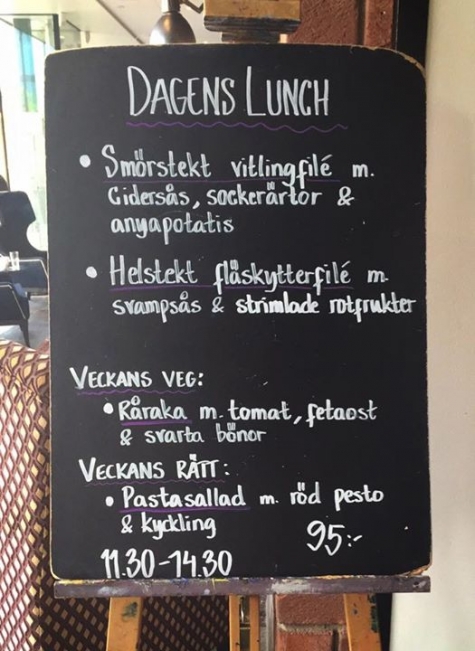 DAGENS LUNCH
• Smörstekt vitlingfilé m.
Cidersås, sockerärtor &
anyapotatis
• Helstekt fläskytterfilé m.
svampsås & strimlade rotfrukter
VECKANS VEG:
• Råraka m. tomat, fetaost
& svarta bönor
VECKANS RÄTT:
• Pastasallad m. röd pesto
& kyckling
95:-
11.30-14.30